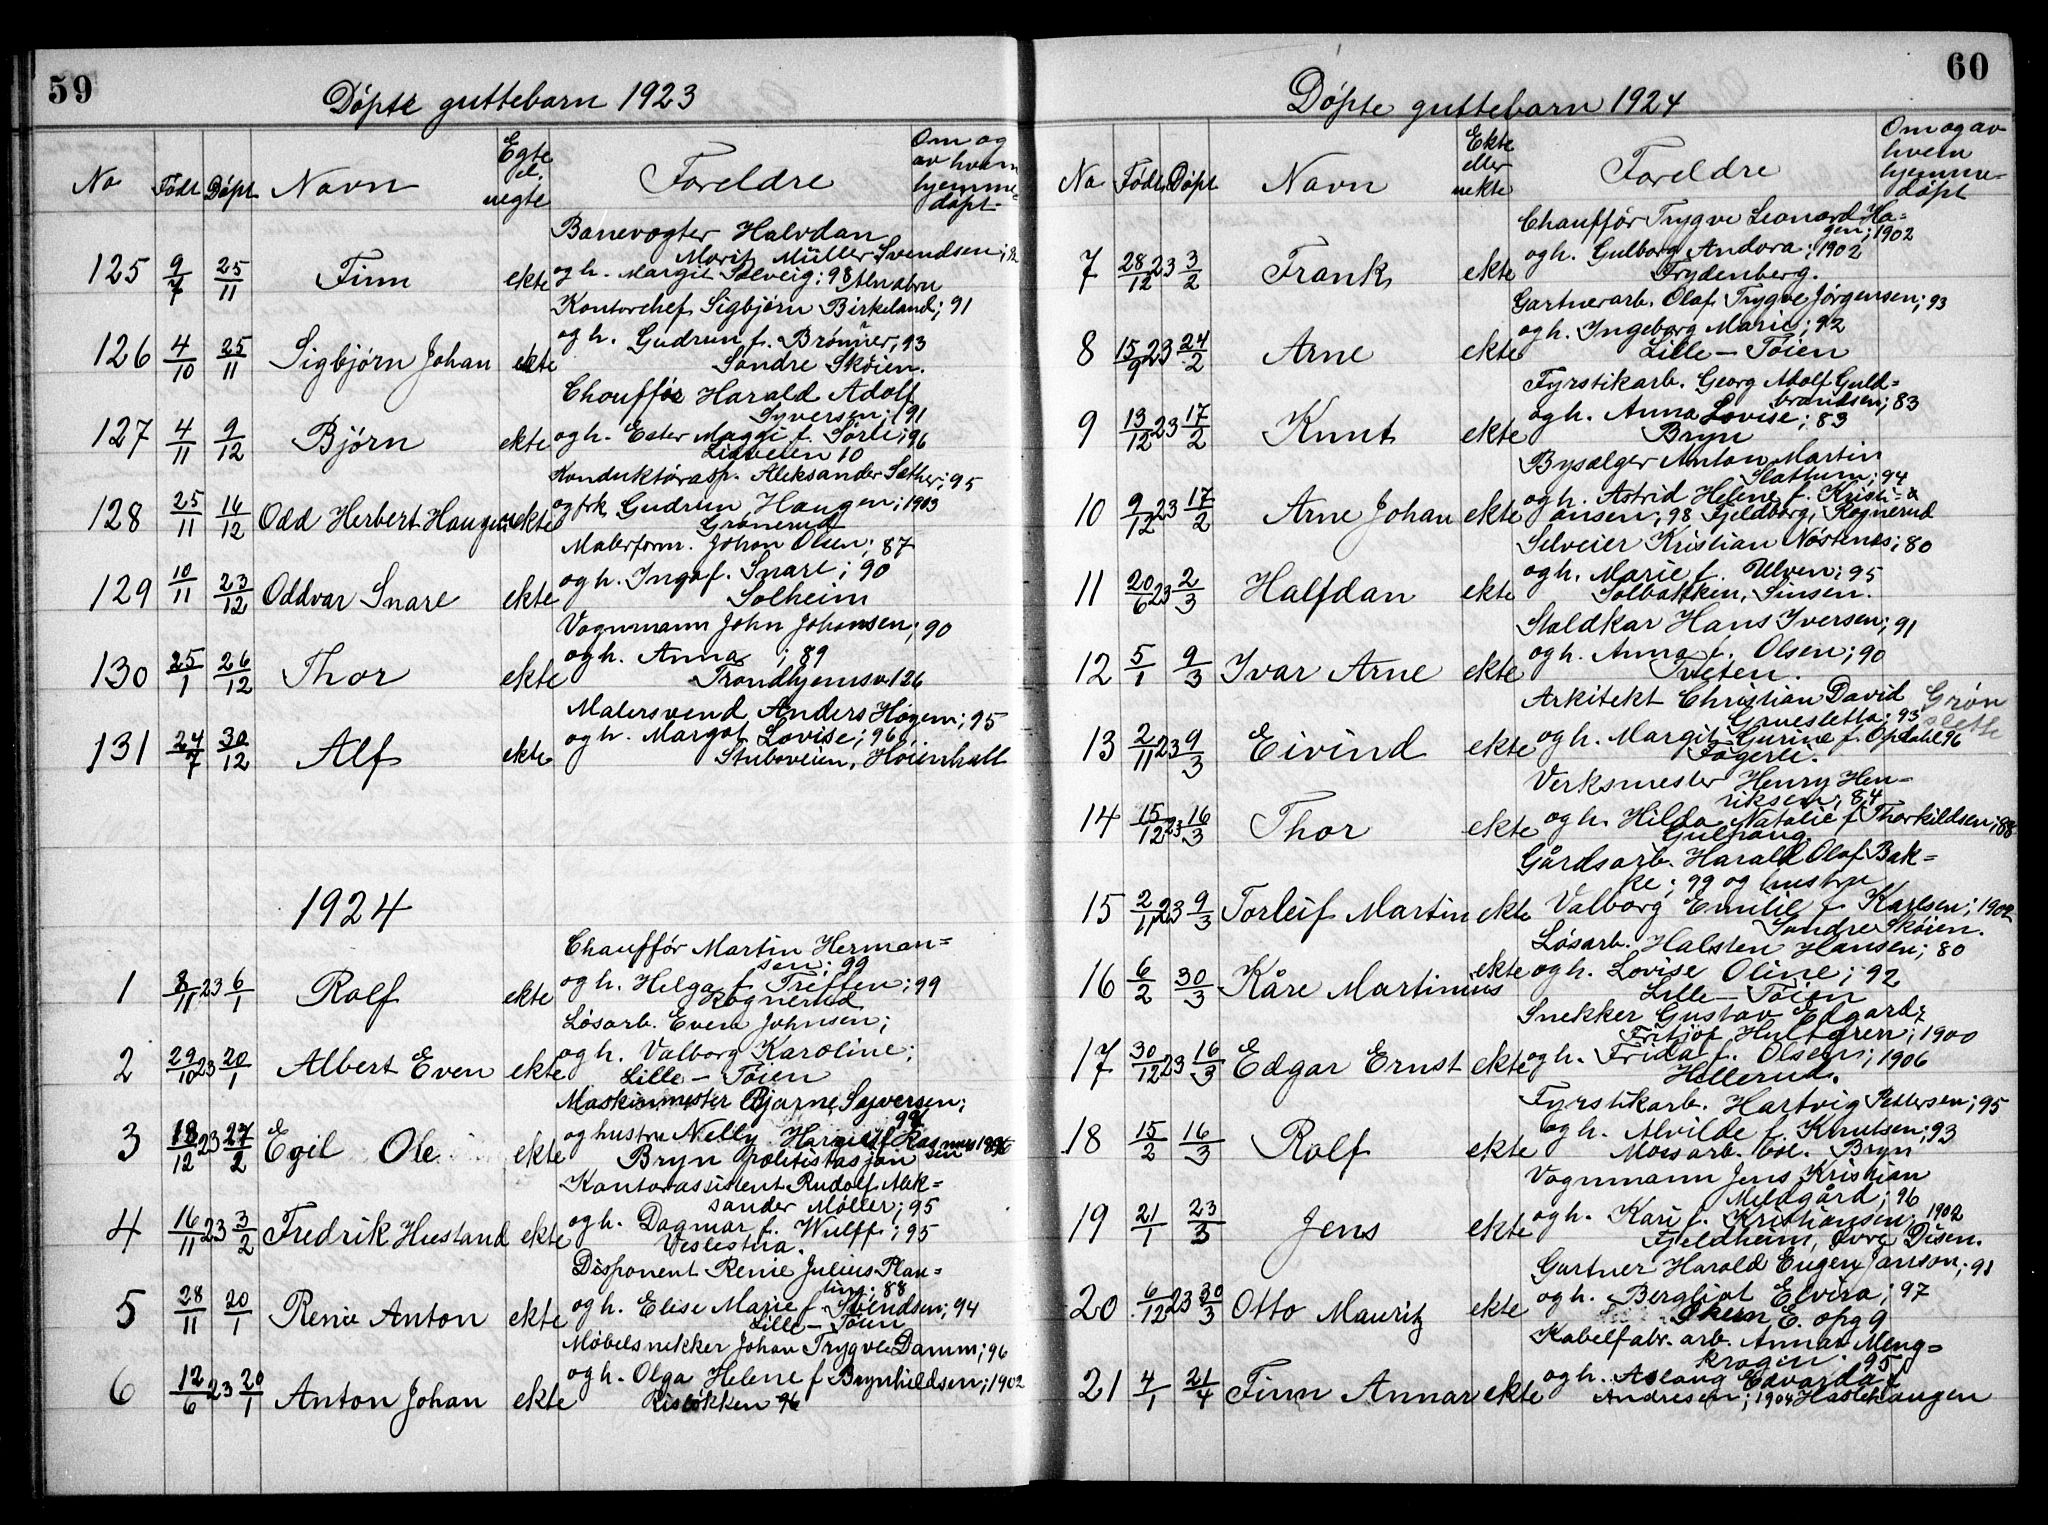 59
Döpte guttebarn 1923
No Födt Döpt Navn Egte el. uegte Foreldre Om og av hvem hjemmedöpt
Banevogter Halvdan
Morit Müller Svendsen;
125 9/7 25/11 Finn ekte og h. Margit Solveig; 98 Alnabru
Kontorchef Sigbjørn Birkeland; 91
og h. Gudrun f. Brønner, 93
126 4/10 25/11 Sigbjørn Johan ekte Söndre Sköien.
Chauffør Harald Adolf
Syversen; 91
127 4/11 9/12 Björn ekte og h. Ester Maggi f. Sörli; 96
Lidveien 10
Konduktörasp. Aleksander Sæther; 95
128 25/11 16/12 Odd Herbert Haugen uekte og frk. Gudrun Haugen; 1903
Grønerud
Malerform. Johan Olsen; 87
og h. Inga f. Snare; 90
129 10/11 23/12 Oddvar Snare ekte Solheim
Vognmann John Johansen; 90
og h. Anna ; 89
130 25/1 26/12 Thor ekte Trondhjemsv. 126
Malersvend Anders Hogen; 95
og h. Margot Lovise; 96
131 24/7 30/12 Alf ekte Stuboveien, Höienhall
1924
Chaufför Martin Herman=
sen; 99
1 8/11 23 6/1 Rolf ekte og h. Helga f. Treffen; 99
Rognerud
Lösarb. Even Johnsen;
og h. Valborg Karoline;
2 29/10 23 20/1 Albert Even ekte Lille - Töien
Maskinmester Bjarne Syversen;
99
3 18/12 23 27/2 Egil Ole ekte og hustru Nelly f. Rasmussen
Bryn politistasjon
Kontorassistent Rudolf Alek=
sander Møller; 95
4 16/11 23 3/2 Fredrik Hustand ekte og h. Dagmar f. Wulff; 95
Veslestua.
Disponent Renie Julius Plan=
ting; 88
5 28/11 20/1 Renie Anton ekte og h. Elise Marie f. Svendsen; 94
Lille - Töien
Möbelsnekker Johan Trygve Damm; 96
og h. Olga Helene f Brynhildsen; 1902
6 12/6 23 20/1 Anton Johan ekte Risløkken 96
60
Döpte guttebarn 1924
No Födt Döpt Navn Ekte eller uekte Foreldre Om og av hvem hjemmedöpt
Chaufför Trygve Leonard Ha=
gen; 1902
7 28/12 23 3/2 Frank ekte og h. Gulborg Andora; 1902
Frydenberg.
Gartnerarb. Olaf Trygve Jörgensen; 93
og h. Ingeborg Marie; 92
8 15/9 23 24/2 Arne ekte Lille - Töien
Fyrstikarb. Georg Adolf Guld=
brandsen; 83
9 13/12 23 17/2 Knut ekte og h. Anna Lovise; 83
Bryn
Bysælger Anton Martin
Slattum; 94
10 9/12 23 17/2 Arne Johan ekte og h. Astrid Helene f. Kristi=
ansen; 98, Fjeldborg, Rognerud
Selveier Kristian Nöstenes; 80
og h. Marie f. Ulven; 95
11 20/6 23 2/3 Halfdan ekte Solbakken, Sinsen.
Staldkar Hans Iversen; 91
og h. Anna f. Olsen; 90
12 5/1 9/3 Ivar Arne ekte Tveten.
Arkitekt Christian David Grön
Gruesletta; 93 slette
13 2/11 23 9/3 Eivind ekte og h. Margit Gurine f. Opdahl 96
Fagerli.
Verksmester Henry Hen=
riksen; 84
14 15/12 23 16/3 Thor ekte og h. Hilda Natalie f Thorkildsen; 88
Gulhaug
Gårdsarb. Harald Olaf Bak=
ke; 99 og hustru
15 2/11 23 9/3 Torleif Martin ekte Valborg Emilie f Karlsen; 1902
Söndre Sköien.
Lösarb. Halsten Hansen; 80
16 6/2 30/3 Kåre Martinius ekte og h. Lovise Oline; 92
Lille - Töien
Snekker Gustav Edgard
Fritjof Hultgren; 1900
17 30/12 23 16/3 Edgar Ernst ekte og h. Frida f. Olsen; 1906
Hellerud.
Fyrstikarb. Hartvig Pettersen; 95
og h. Alvilde f. Knutsen; 93
18 15/2 16/3 Rolf ekte Mossarb. bol. Bryn
Vognmann Jens Kristian
Meldgård; 96
19 21/1 23/3 Jens ekte og h. Kari f. Kristiansen; 1902
Fjeldheim, övre Disen.
Gartner Harald Eugen Janson; 91
og h. Bergliot Elvira; 97
20 6/12 23 30/3 Otto Mauritz ekte Ökern, E. opg 9
Kabelfabr. arb. Annar Meng=
krogen. 95
21 4/1 21/4 Finn Annar ekte og h. Aslaug Edvarda f.
Andresen; 1904 Haslehaugen